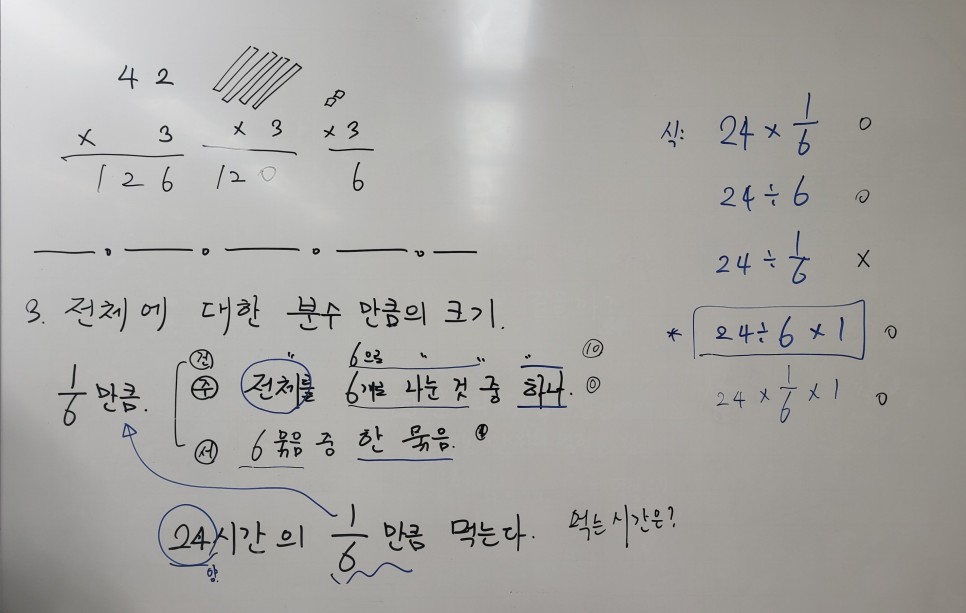 42
× 3 × 3 × 3
126 120 6
3. 전체에 대한 분수 만큼의 크기.
1/6 만큼.
건 " 6으로 " " " 10
주 전체를 6개로 나눈 것 중 하나. 0
서 6묶음 중 한 묶음.
24시간의 1/6 만큼 먹는다. 먹는 시간은?
양.
식: 24 × 1/6 o
24 ÷ 6 o
24 ÷ 1/6 x
* 24÷6×1 o
24 × 1/6 × 1 o